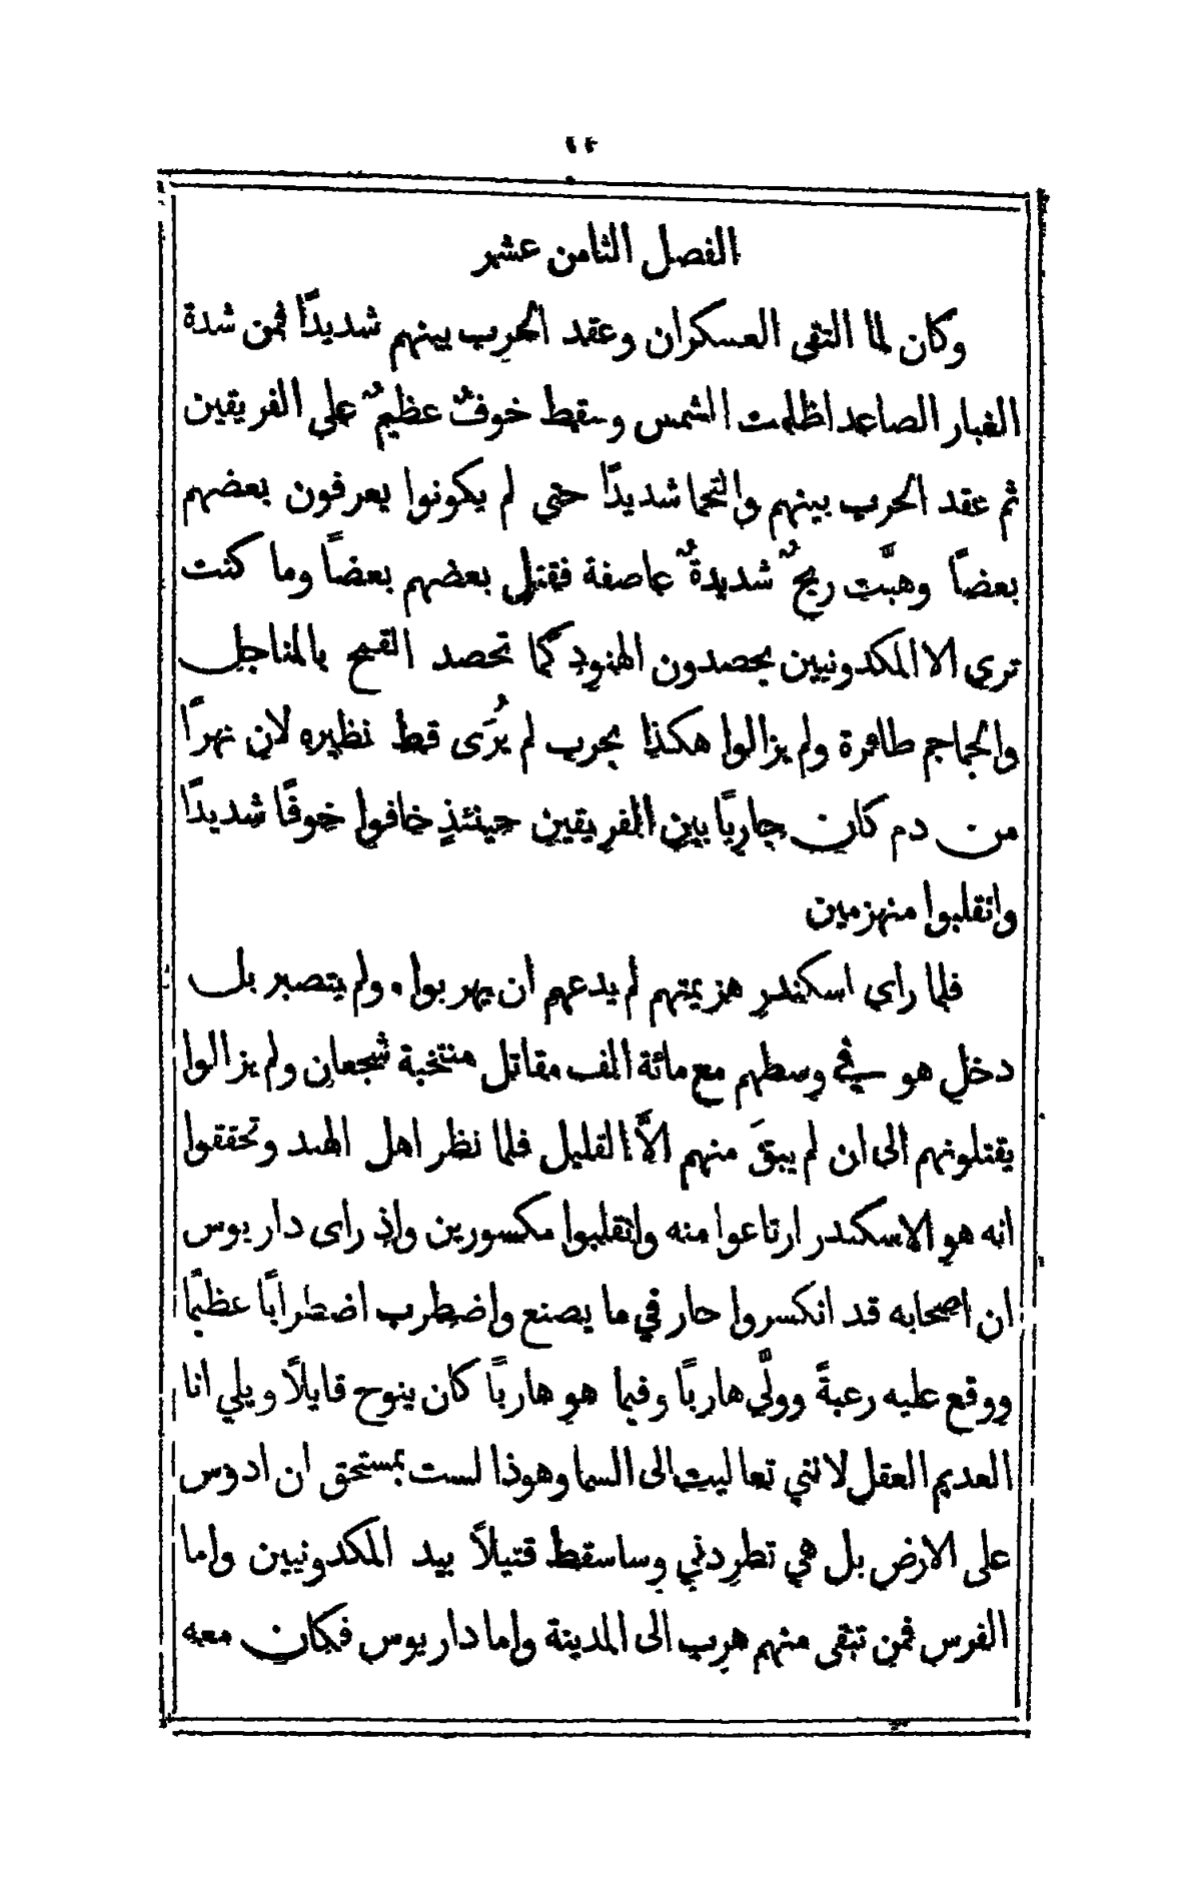 الفصل الثامن عشر
وكان لما التقى العسكران وعقد الحرب بينهم شديدًا فمن شدة
الغبار الصاعد اظلمت الشمس وسقط خوفٌ عظيمٌ على الفريقين
ثم عقد الحرب بينهم والتحما شديدًا حتي لم يكونوا يعرفون بعضهم
بعضاً وهبَّت ريحٌ شديدةٌ عاصفة فقتل بعضهم بعضاً وما كنت
تري الا المكدونيين يحصدون الهنود كما تحصد القمح بالمناجل
والجماجم طائرة ولم يزالوا هكذا بحرب لم يُرَى قط نظيره لان نهرًا
من دم كان جاريًا بين الفريقين حينئذٍ خافوا خوفًا شديدًا
وانقلبوا منهزمين
فلما راي اسكندر هزيمتهم لم يدعهم ان يهربوا. ولم يتصبر بل
دخل هو في وسطهم مع مائة الف مقاتل منتخبة شجعان ولم يزالوا
يقتلونهم الى ان لم يبقَ منهم الاَّ القليل فلما نظر اهل الهند وتحققوا
انه هو الاسكندر ارتاعوا منه وانقلبوا مكسورين واذ راى داريوس
ان اصحابه قد انكسروا حار في ما يصنع واضطرب اضطرابًا عظيمًا
ووقع عليه رعبةً وولَّي هاربًا وفيما هو هاربًا كان ينوح قايلاً ويلي انا
العديم العقل لانني تعاليت الى السما وهوذا لست بمستحق ان ادوس
على الارض بل هي تطردني وساسقط قتيلاً بيد المكدونيين واما
الفرس فمن تبقى منهم هرب الى المدينة واما داريوس فكان معه